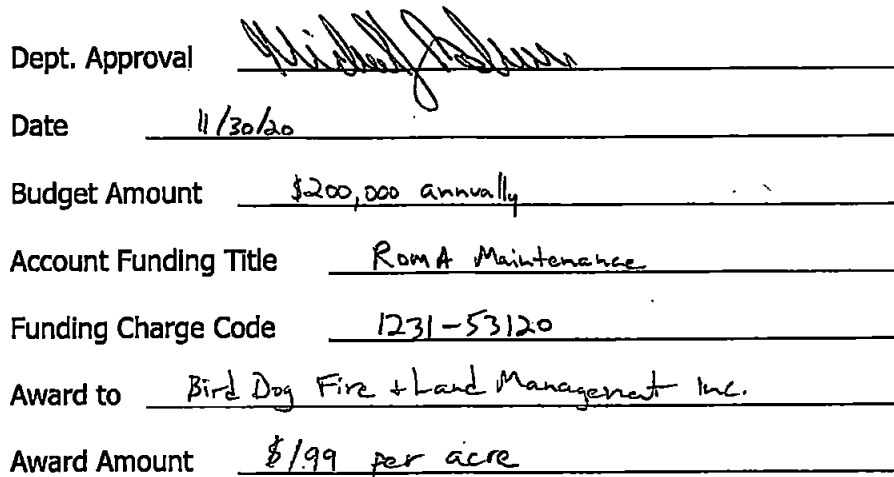 Dept. Approval
Date 11/30/20
Budget Amount $200,000 annually
Account Funding Title RomA Maintenance
Funding Charge Code 1231-53120
Award to Bird Dog Fire + Land Management Inc.
Award Amount $1.99 per acre